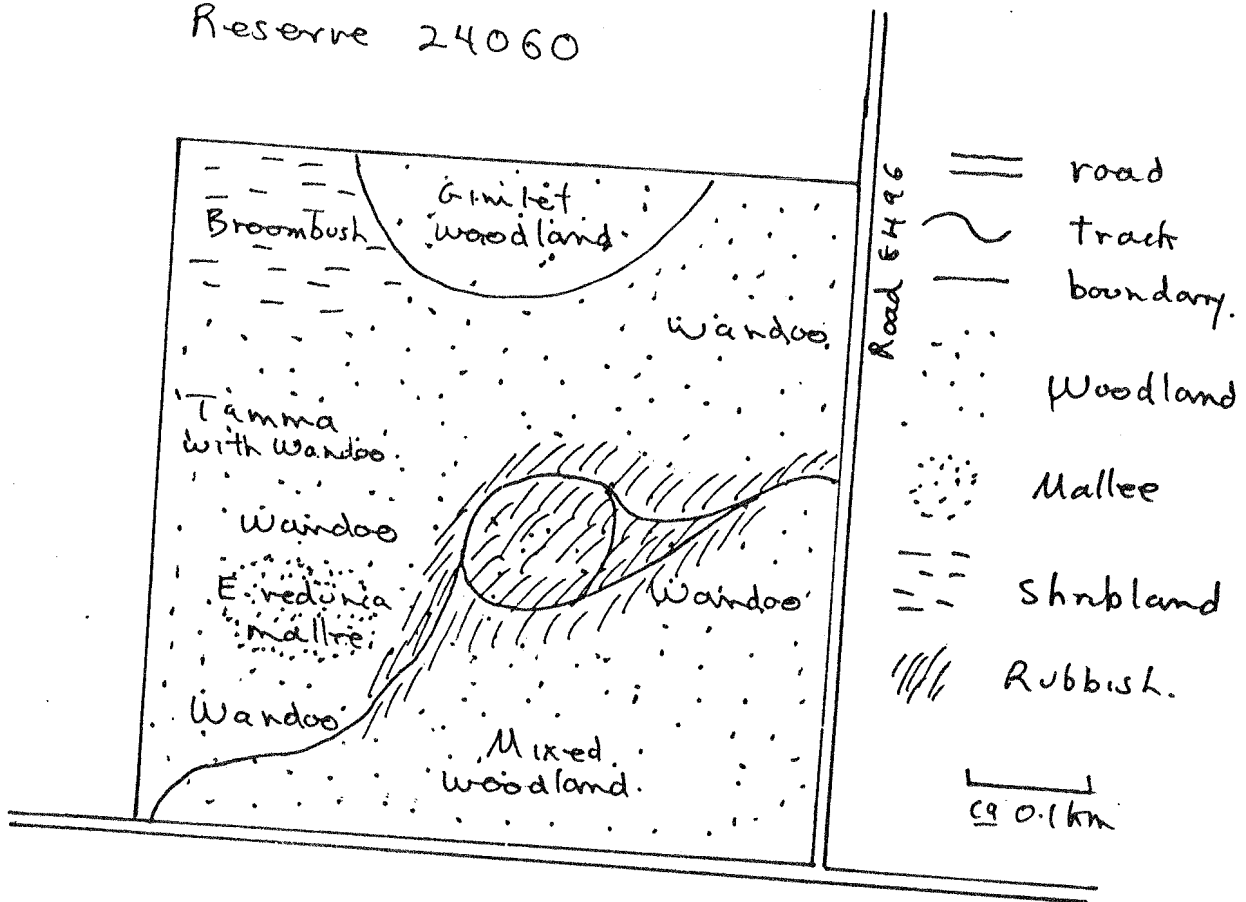 Reserve 24060
Gimlet
woodland.
Broombush
Wandoo.
Tamma
with Wandoo.
Wandoo
E. redunca
mallee
Wandoo
Wandoo
Mixed
woodland.
Road 8496
road
track
boundary.
Woodland
Mallee
Shrubland
Rubbish.
ca 0.1km